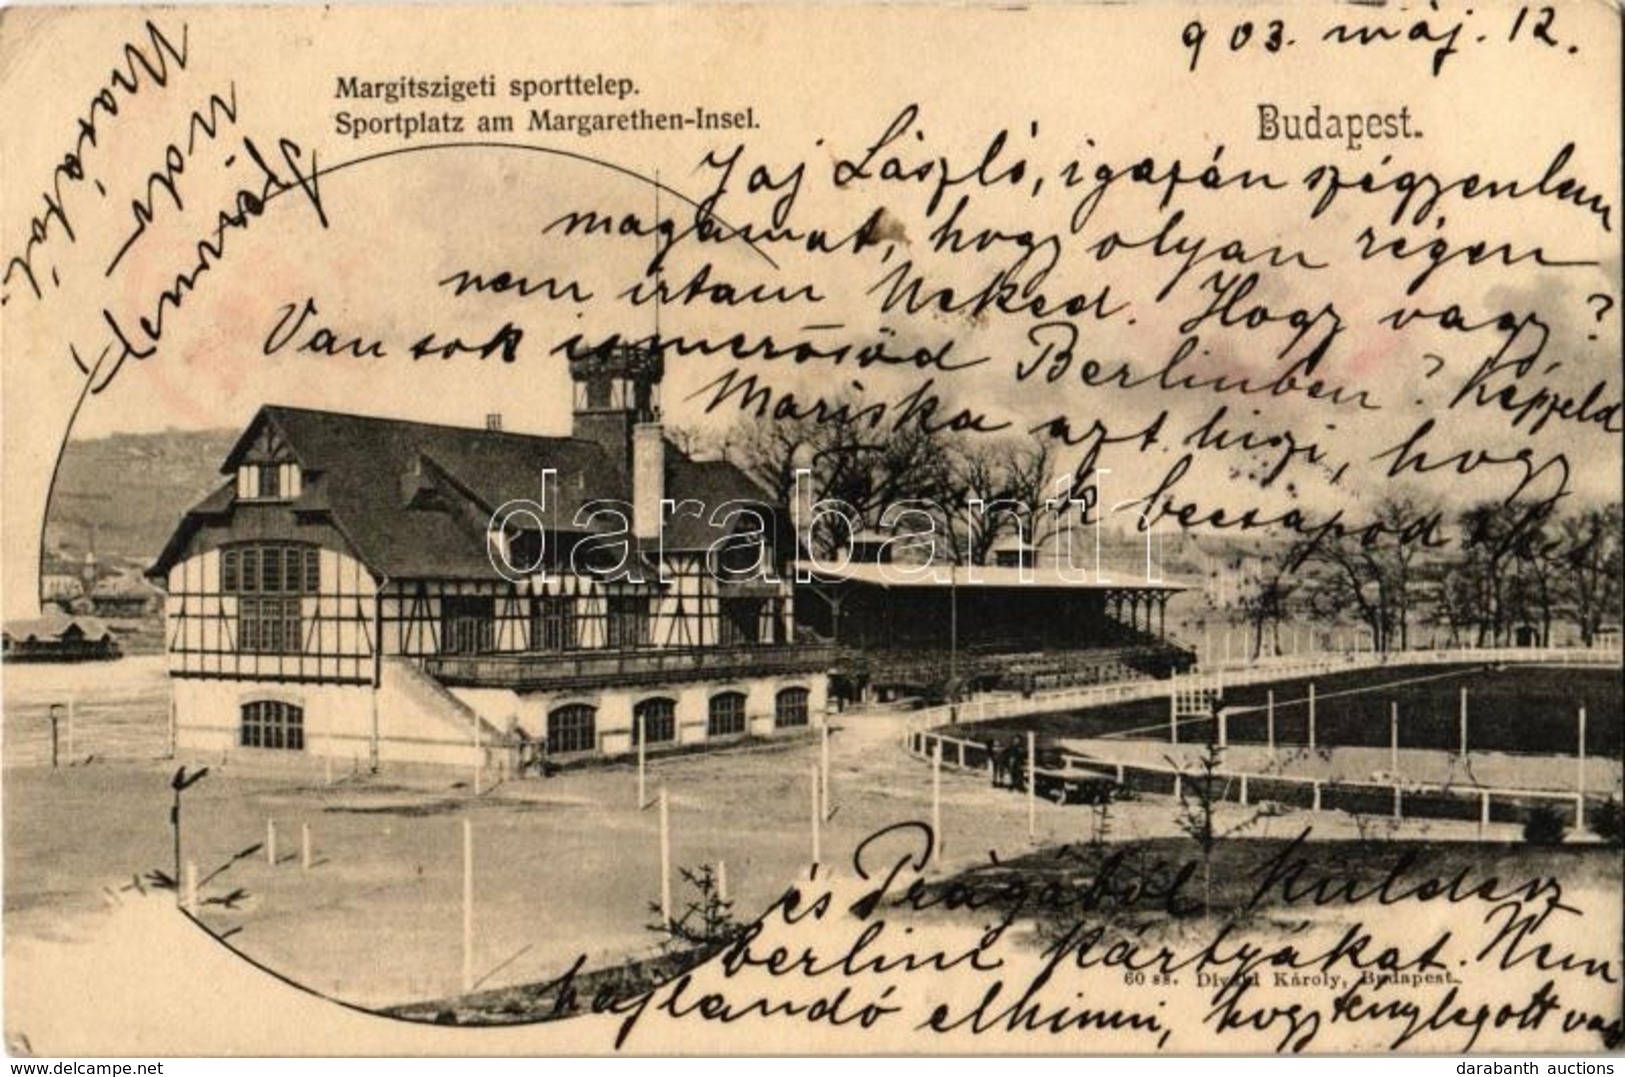 903. máj. 12.
Margitszigeti sporttelep.
Sportplatz am Margarethen-Insel.
Budapest.
Jaj László, igazán szégyenlem
magamat, hogy olyan régen
nem írtam Neked. Hogy vagy?
Van sok ismerősöd Berlinben? Képzeld
Mariska azt hiszi, hogy
becsapod őket
és Prágából küldesz
berlini kártyákat. Nem
hajlandó elhinni, hogy tényleg ott vagy
60 sz. Divald Károly, Budapest.
darabanth
darabanth auctions
Delcampe.net